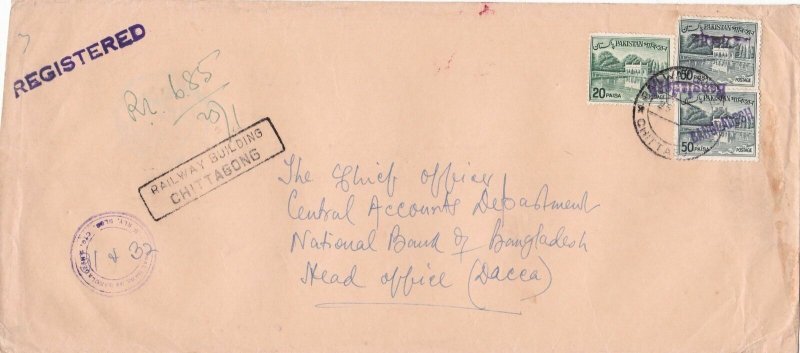 REGISTERED
Rr. 685
20/1
RAILWAY BUILDING
CHITTAGONG
PAKISTAN
20 PAISA
POSTAGE
PAKISTAN
50
POSTAGE
PAKISTAN
BANGLADESH
50 PAISA
POSTAGE
CHITTA
The Chief Officer
Central Accounts Department
National Bank of Bangladesh
Head office (Dacca)
1 & 32